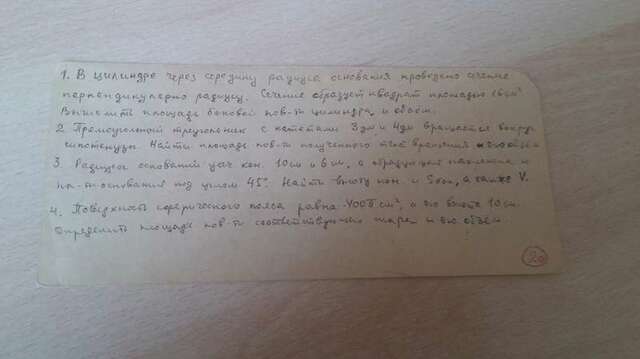 1. В цилиндре через середину радиуса основания проведено сечение
перпендикулярно радиусу. Сечение образует квадрат площадью 16 см²
Вычислить площадь боковой пов-ти цилиндра и объём.
2. Прямоугольный треугольник с катетами 3дм и 4дм вращается вокруг
гипотенузы. Найти площадь пов-ти полученного тела вращения и его объём
3. Радиусы оснований усеч кон. 10см и 6см, а образующая наклонена к
пл-ти основания под углом 45°. Найти высоту кон. и Sбок, а также V.
4. Поверхность сферического пояса равна 400π см², а его высота 10см.
Определить площадь пов-ти соответствующего шара и его объём.
20